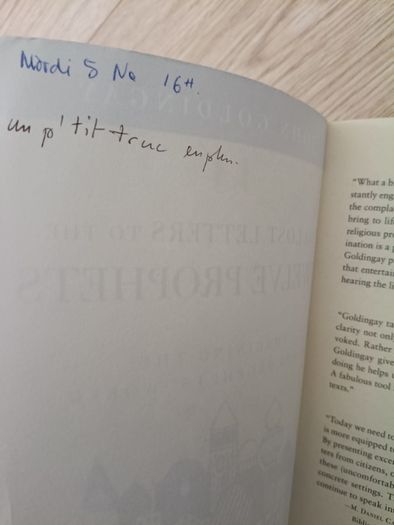 Mardi 5 No 16H.
un p'tit truc en plus.
JOHN GOLDINGAY
LOST LETTERS TO THE
TWELVE PROPHETS
"What a b
stantly eng
the compla
bring to lif
religious pr
ination is a
Goldingay p
that entertai
hearing the li
"Goldingay ta
clarity not onl
voked. Rather
Goldingay give
doing he helps
A fabulous tool
texts."
"Today we need to
is more equipped t
By presenting exce
ters from citizens, c
these (uncomfortab
concrete settings. T
continue to speak in
—M. DANIEL C
Bibli